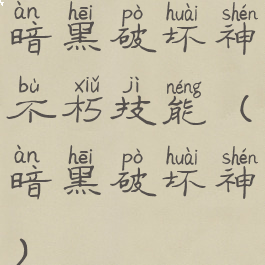 àn hēi pò huài shén
暗黑破坏神
bù xiǔ jì néng
不朽技能（
àn hēi pò huài shén
暗黑破坏神
）